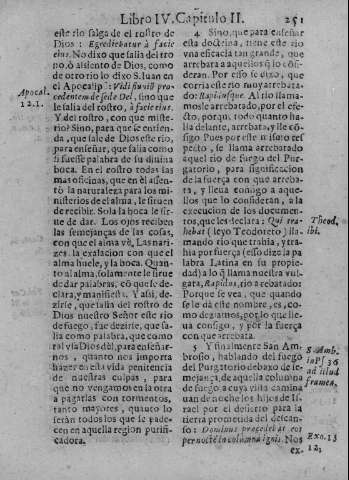 Libro IV. Capitulo II. 251
este rio salga de el rostro de
Dios: Egrediebatur à facie
eius. No dixo que salia del tro
no, ò assiento de Dios, como
de otro rio lo dixo S. Iuan en
el Apocalip: Vidi fluuiũ pro
cedentem de sede Dei, sino que
le salia del rostro, à facie eius.
Y. del rostro, con que miste-
rio? Sino, para que se entien-
da, que sale de Dios este rio,
para enseñar, que salia como
si fuesse palabra de su diuina
boca. En el rostro todas las
mas oficinas, que en èl assen-
tò la naturaleza para los mi
nisterios de el alma, le siruen
de recibir. Sola la boca le sir-
ue de dar. Los ojos reciben
las semejanças de las cosas,
con que el alma vè, Las nari-
zes. la exalacion con que el
alma huele, y la boca. Quan-
to al alma, solamente le sirue
de dar palabras, cõ que se de-
clara, y manifiesta. Y assi, de-
zirse, que salia del rostro de
Dios nuestro Señor este rio
de fuego, fue dezirse, que sa-
lia como palabra, que como
tal vsa Dios dèl, para enseñar-
nos, quanto nos importa
hazer en esta vida penitencia
de nuestras culpas, para
que no vengamos en la otra
a pagarlas con tormentos,
tanto mayores, quanto lo
seràn todos los que se pade-
cen en aquella region purifi-
cadora.
Apocal.
12.1.
4 Sino, que para enseñar
esta doctrina, tiene este rio
vna eficacia tan grande, que
arrebata a aquellos q̃ lo cõsi-
deran. Por esso se dixo, que
corria este rio muy arrebata-
do: Rapidusque. Al rio llama-
mosle arrebatado, por el efe-
cto, porque todo quanto ha-
lla delante, arrebata, y lle cõ-
sigo. Pues por este mismo res-
pecto, se llama arrebatado
aquel rio de fuego del Pur-
gatorio, para significacion
de la fuerça con que arreba-
ta, y lleua consigo a aque-
llos que lo consideran, a la
execucion de los documen-
tos, que les declara: Qui tra-
hebat (leyo Teodoreto) lla-
mando rio que trahia, y tra-
hia por fuerça (esso dize la pa
labra Latina en su propie-
dad) a lo q̃ llama nuestra vul-
gata, Rapidus, rio arrebatado:
Porque se vea, que quando
se le dà este nombre, es, co-
mo dezimos, por lo que lle-
ua consigo, y por la fuerça
con que arrebata.
5 Y finalmente San Am-
brosio, hablando del fuego
del Purgatorio debaxo de se-
mejança, de aquella columna
de fuego a cuya vista camina
uan de noche los hijos de Is-
rael por el desierto para la
tierra prometida del descan-
so: Dominus procedebat eos
per nocte in columna ignis. Nos
ex-
Theod.
ibi.
S. Amb.
in Ps. 36
ad illud
framea.
Exo. 13
12;